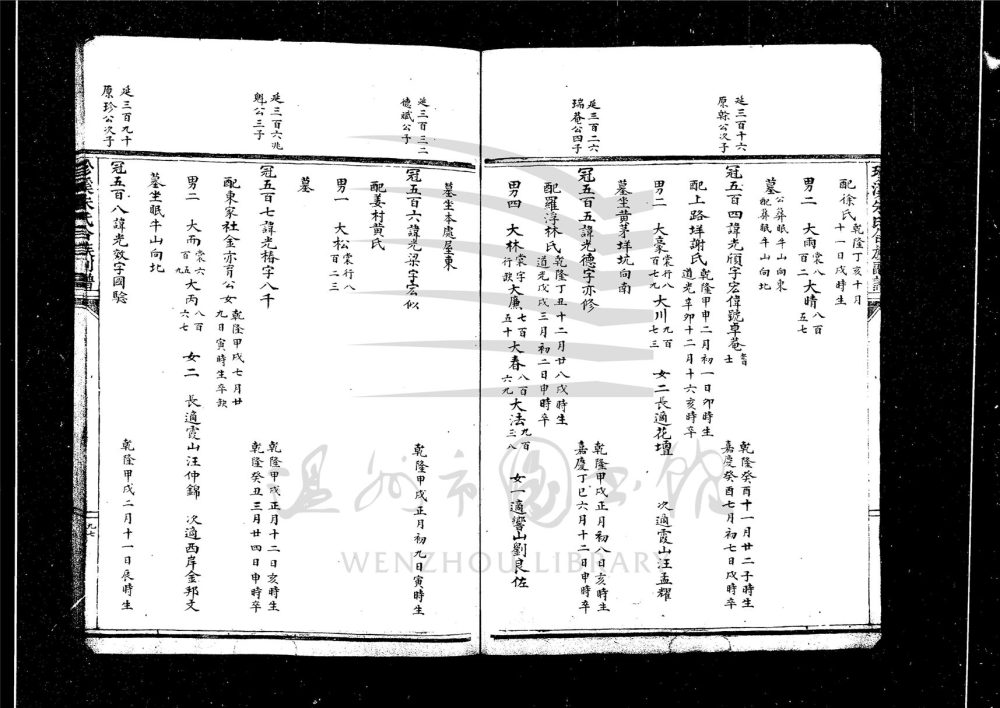 配徐氏 乾隆丁亥十月
十一日戌時生
男二 大雨 棠八百二 大晴 八百五七
墓 公葬眠牛山向東
配葬眠牛山向北
延三百十六
原榦公次子
冠五百四諱光頎字宏偉號卓菴
乾隆癸酉十一月廿二子時生
嘉慶癸酉七月初七日戌時卒
配上路垟謝氏 乾隆甲申二月初一日卯時生
道光辛卯十二月十六亥時卒
男二 大豪 棠行八百七九 大川 九百七三 女二 長適花壇 次適霞山汪孟耀
墓坐黄茅垟坑向南
延三百二六
瑞菴公四子
冠五百五諱光德字亦修
乾隆甲戌正月初八日亥時生
嘉慶丁巳六月十二日申時卒
配羅浮林氏 乾隆丁丑十二月廿八戌時生
道光戊戌三月初二日申時卒
男四 大林 棠字行缺 大廉 七百五十 大春 八百六九 大法 九百三八 女一適響山劉良佐
墓坐本處屋東
延三百三二
億贓公子
冠五百六諱光梁字宏似
乾隆甲戌正月初九日寅時生
配姜村黄氏
男一 大松 棠行八百二三
墓
延三百六兆
魁公三子
冠五百七諱光椿字八千
乾隆甲戌正月十二日亥時生
乾隆癸丑三月廿四日申時卒
配東家社金亦育公女 乾隆甲戌七月廿
九日寅時生卒缺
男二 大而 棠六百五九 大丙 八百六七 女二 長適霞山汪仲錦 次適西岸金邦文
墓坐眠牛山向北
延三百九十
原珍公次子
冠五百八諱光效字國驗
乾隆甲戌二月十一日辰時生
珍溪朱氏合族副譜
九七
温州市圖书館
WENZHOU LIBRARY